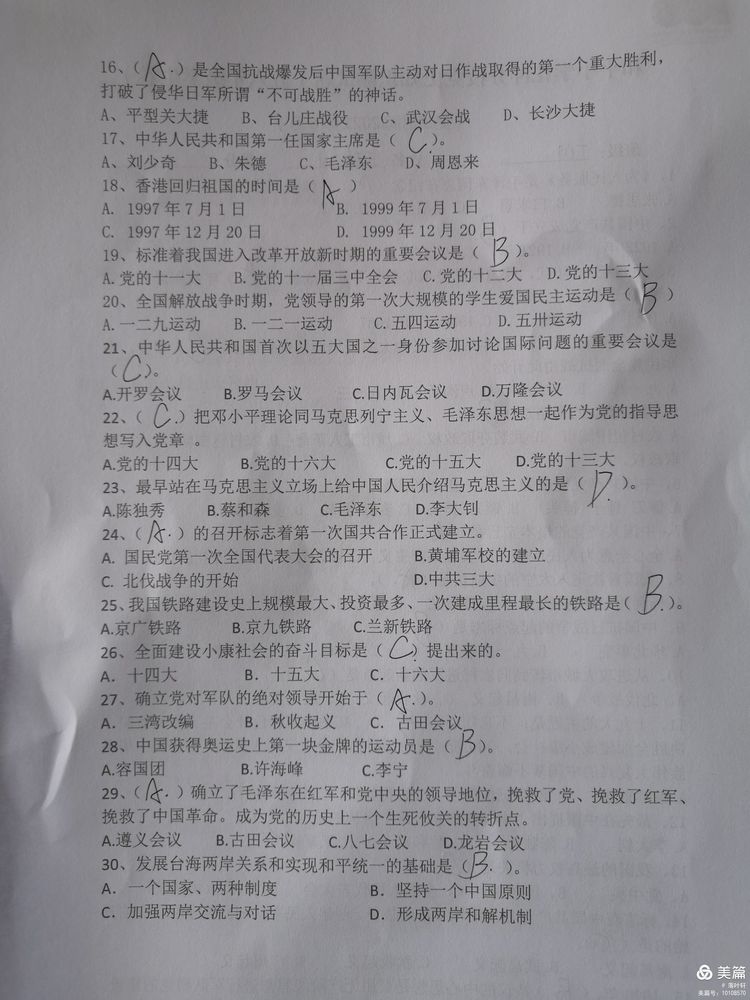 16、（A.）是全国抗战爆发后中国军队主动对日作战取得的第一个重大胜利，
打破了侵华日军所谓“不可战胜”的神话。
A、平型关大捷 B、台儿庄战役 C、武汉会战 D、长沙大捷
17、中华人民共和国第一任国家主席是（C.）。
A、刘少奇 B、朱德 C、毛泽东 D、周恩来
18、香港回归祖国的时间是（A）
A. 1997年7月1日 B. 1999年7月1日
C. 1997年12月20日 D. 1999年12月20日
19、标准着我国进入改革开放新时期的重要会议是（B）。
A.党的十一大 B.党的十一届三中全会 C.党的十二大 D.党的十三大
20、全国解放战争时期，党领导的第一次大规模的学生爱国民主运动是（B）
A.一二九运动 B.一二一运动 C.五四运动 D.五卅运动
21、中华人民共和国首次以五大国之一身份参加讨论国际问题的重要会议是
（C）。
A.开罗会议 B.罗马会议 C.日内瓦会议 D.万隆会议
22、（C.）把邓小平理论同马克思列宁主义、毛泽东思想一起作为党的指导思
想写入党章 。
A.党的十四大 B.党的十六大 C.党的十五大 D.党的十三大
23、最早站在马克思主义立场上给中国人民介绍马克思主义的是（D.）。
A.陈独秀 B.蔡和森 C.毛泽东 D.李大钊
24、（A.）的召开标志着第一次国共合作正式建立。
A. 国民党第一次全国代表大会的召开 B.黄埔军校的建立
C. 北伐战争的开始 D.中共三大
25、我国铁路建设史上规模最大、投资最多、一次建成里程最长的铁路是（B.）。
A.京广铁路 B.京九铁路 C.兰新铁路
26、全面建设小康社会的奋斗目标是（C.）提出来的。
A. 十四大 B. 十五大 C. 十六大
27、确立党对军队的绝对领导开始于（A.）。
A. 三湾改编 B. 秋收起义 C. 古田会议
28、中国获得奥运史上第一块金牌的运动员是（B）。
A.容国团 B.许海峰 C.李宁
29、（A.）确立了毛泽东在红军和党中央的领导地位，挽救了党、挽救了红军、
挽救了中国革命。成为党的历史上一个生死攸关的转折点。
A.遵义会议 B.古田会议 C.八七会议 D.龙岩会议
30、发展台海两岸关系和实现和平统一的基础是（B.）。
A. 一个国家、两种制度 B. 坚持一个中国原则
C. 加强两岸交流与对话 D. 形成两岸和解机制
美篇
# 落叶轩
美篇号：10108570